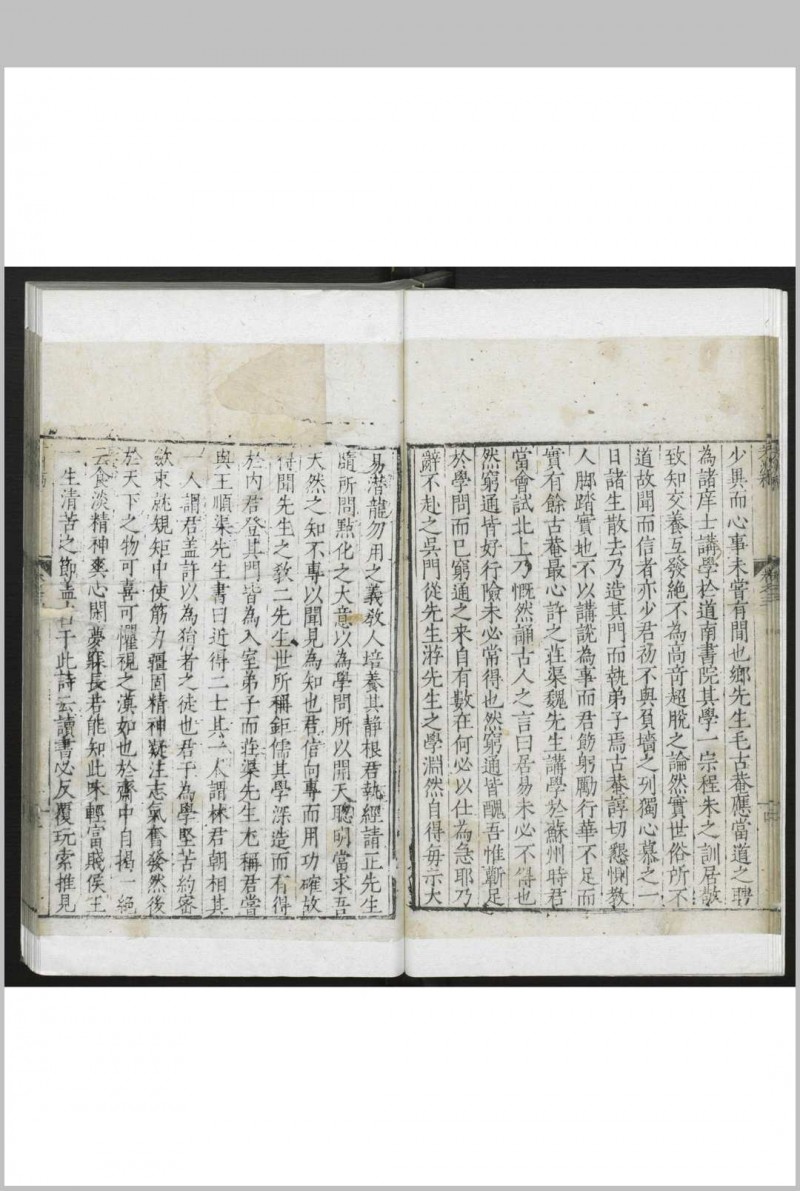 少異而心事未嘗有間也鄉先生毛古菴應當道之聘
為諸庠士講學於道南書院其學一宗程朱之訓居敬
致知交養互發絶不為高竒超脫之論然實世俗所不
道故聞而信者亦少君初不與負墻之列獨心慕之一
日諸生散去乃造其門而執弟子焉古菴諄切懇惻教
人脚踏實地不以講說為事而君飭躬勵行華不足而
實有餘古菴最心許之莊渠魏先生講學於蘇州時君
當會試北上乃慨然誦古人之言曰居易未必不得也
然窮通皆好行險未必常得也然窮通皆醜吾惟蘄足
於學問而已窮通之来自有數在何必以仕為急耶乃
辭不赴之吳門從先生游先生之學淵然自得每示大
易潜龍勿用之義教人培養其静根君執經請正先生
隨所問㸃化之大意以為學問所以開天聰明當求吾
天然之知不專以聞見為知也君信向專而用功確故
得聞先生之教二先生世所稱鉅儒其學深造而有得
於内君登其門皆為入室弟子而莊渠先生尤稱君嘗
與王順渠先生書曰近得二士其一人謂林君朝相其
一人謂君盖許以為狷者之徒也君于為學堅苦約密
歛束就規矩中使筋力疆固精神凝注志氣奮發然後
於天下之物可喜可懼視之漠如也於齋中自揭一絶
云食淡精神爽心閑夢寐長君能知此味輕富賤侯王
一生清苦之節盖 于此詩云讀書必反覆玩索推見